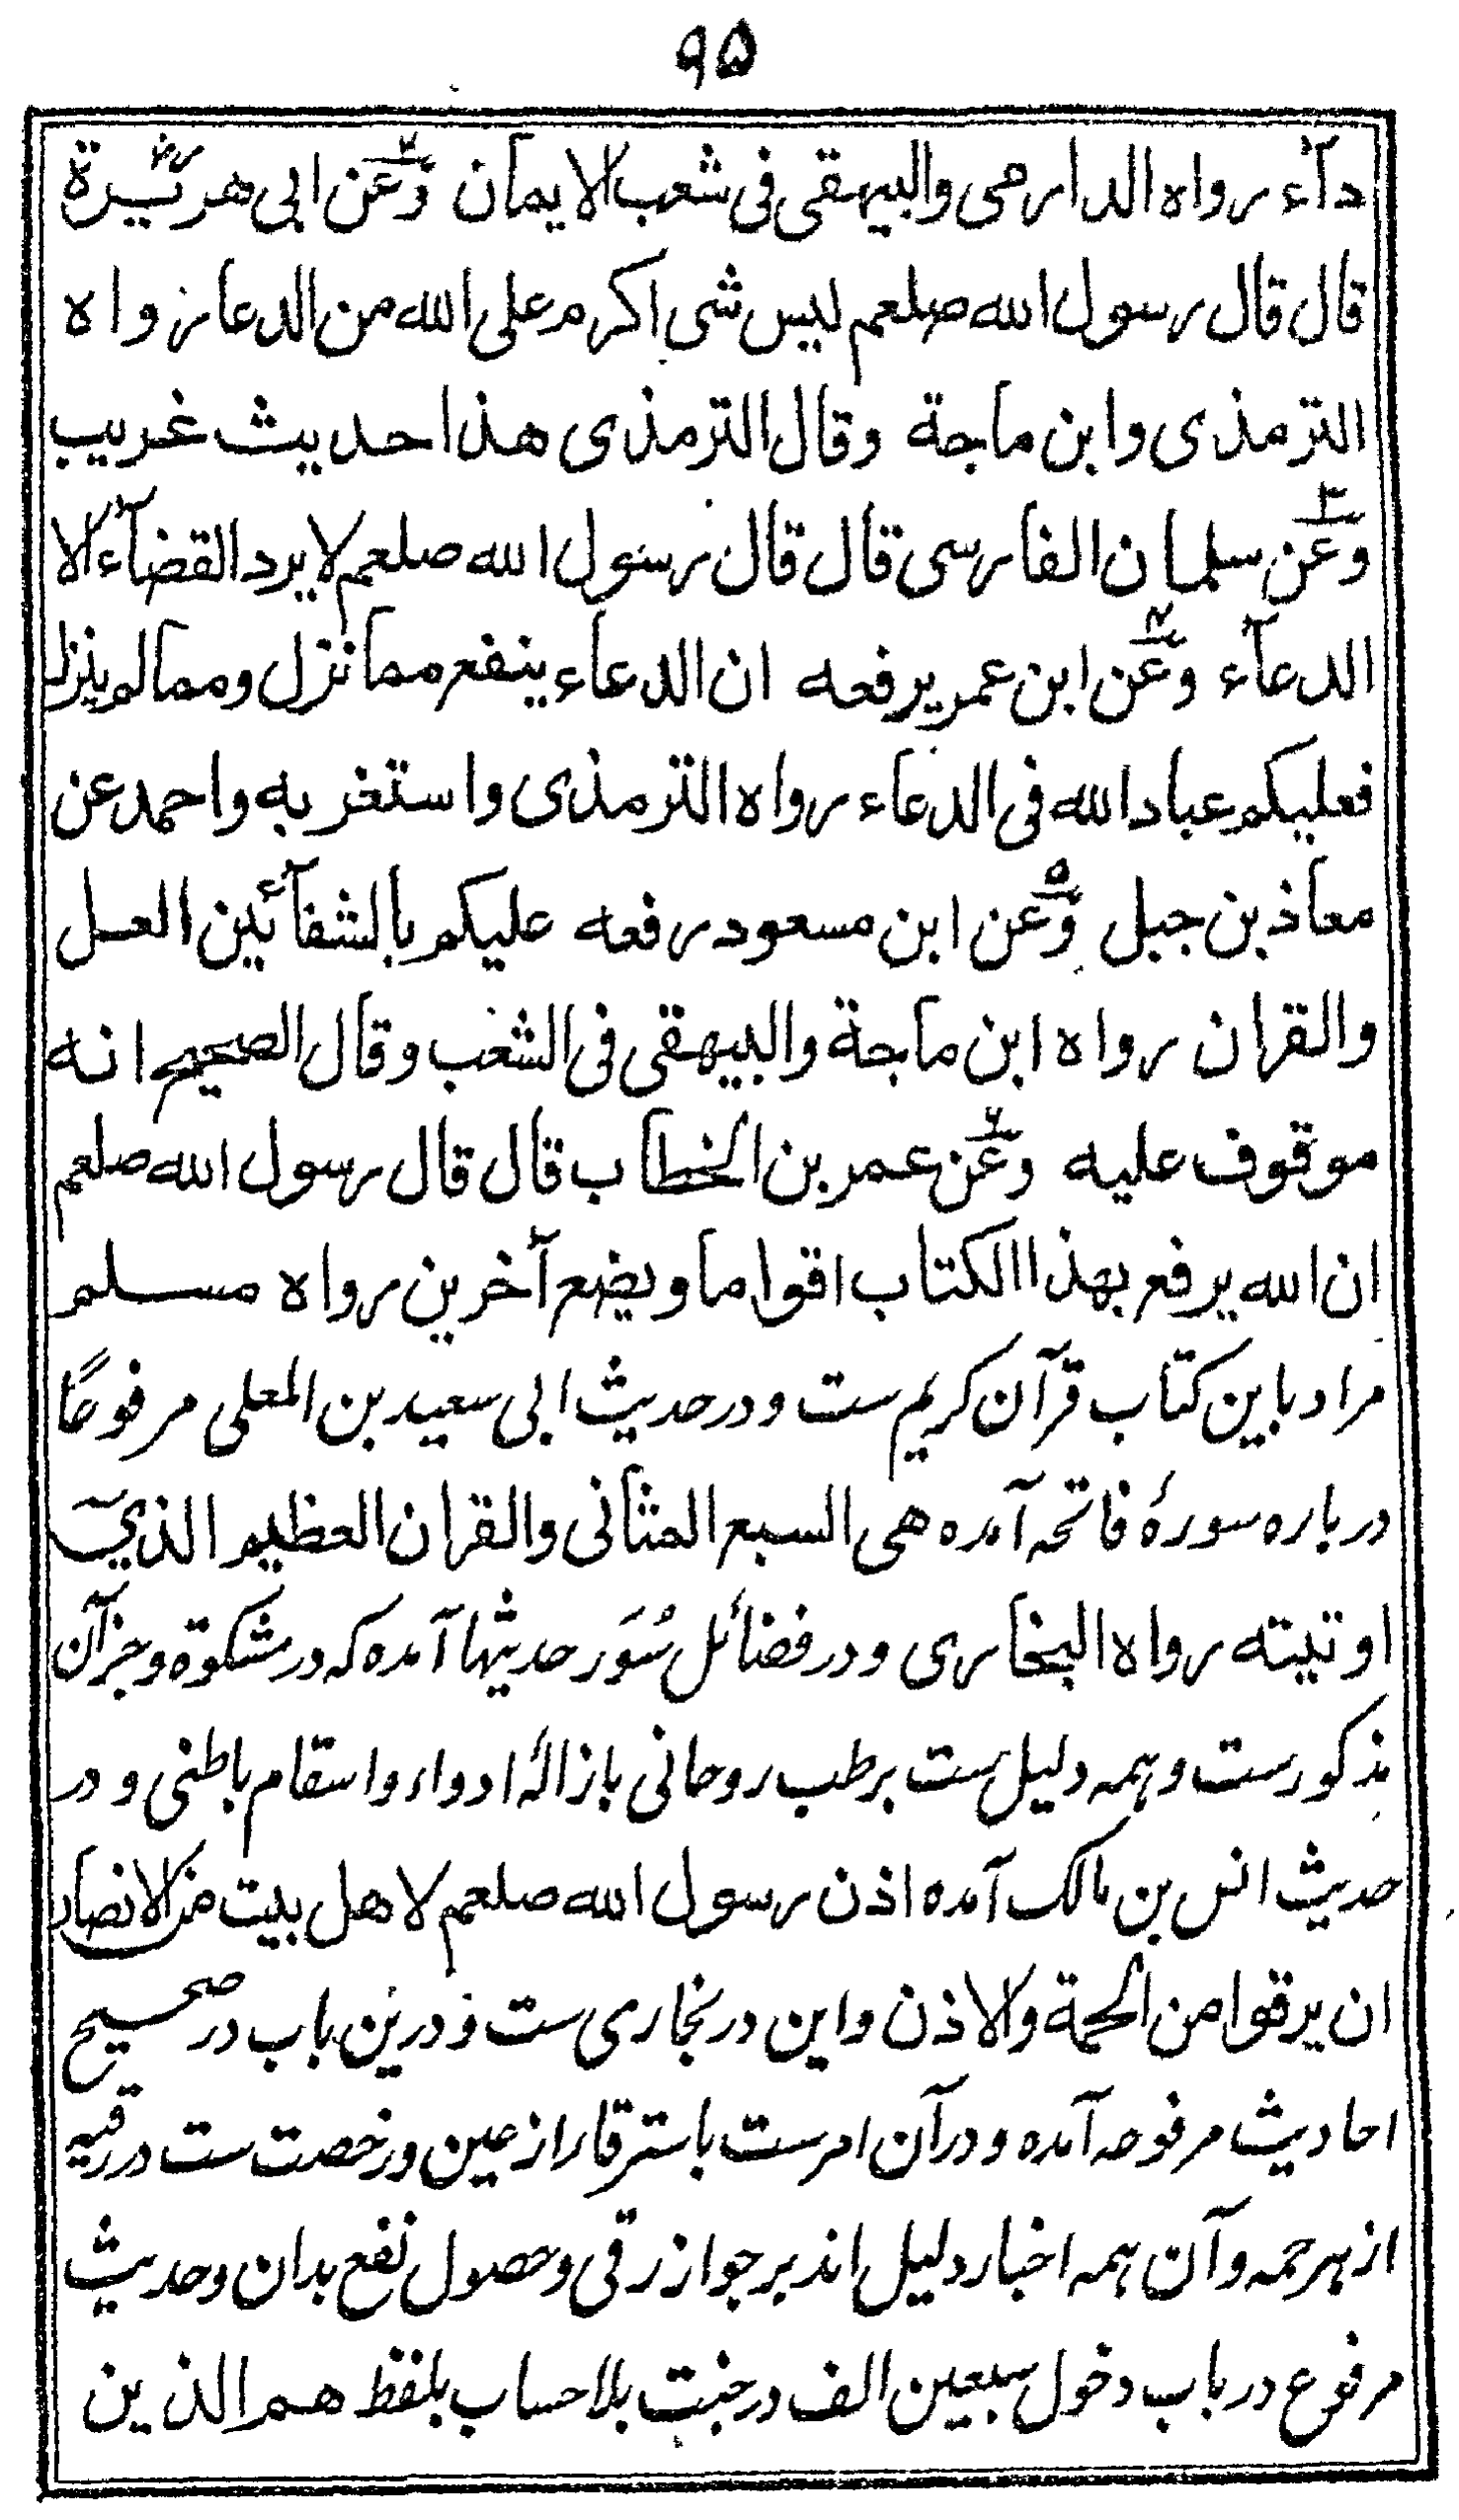 ۹۵
دآء رواه الدارمی والبیهقی فی شعب الایمان وعن ابی هریرة
قال قال رسول الله صلعم لیس شی اکرم علی الله من الدعا رواه
الترمذی وابن ماجة وقال الترمذی هذا حدیث غریب
وعن سلمان الفارسی قال قال رسول الله صلعم لا یرد القضآء الا
الدعآء وعن ابن عمر یرفعه ان الدعاء ینفع مما نزل ومما لم ینزل
فعلیکم عباد الله فی الدعاء رواه الترمذی واستغربه واحمد عن
معاذ بن جبل وعن ابن مسعود رفعه علیکم بالشفآئین العسل
والقران رواه ابن ماجة والبیهقی فی الشعب وقال الصحیح انه
موقوف علیه وعن عمر بن الخطاب قال قال رسول الله صلعم
ان الله یرفع بهذا الکتاب اقواما ویضع آخرین رواه مسلم
مراد باین کتاب قرآن کریم ست و در حدیث ابی سعید بن المعلی مرفوعًا
درباره سورهٔ فاتحه آمده هی السبع المثانی والقران العظیم الذی
اوتیته رواه البخاری و در فضائل سُوَر حدیثها آمده که در مشکوة وجزآن
مذکورست وهمه دلیل ست بر طب روحانی بازالهٔ ادواء واسقام باطنی و در
حدیث انس بن مالک آمده اذن رسول الله صلعم لاهل بیت من الانصار
ان یرقوا من الحمة والاذن واین در بخاری ست ودرین باب در صحیح
احادیث مرفوعه آمده و درآن امرست باسترقا از عین ورخصت ست در رقیه
از هر حمه وآن همه اخبار دلیل اند بر جواز رقی وحصول نفع بدان وحدیث
مرفوع در باب دخول سبعین الف در جنت بلا حساب بلفظ هم الذین